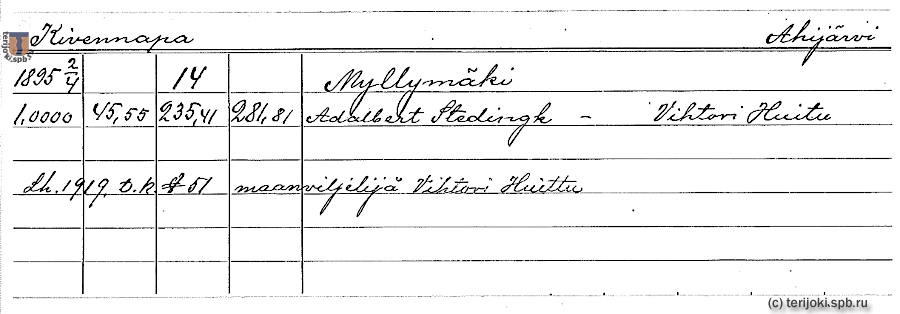 Kivennapa Ahijärvi
1895 2/4 14 Myllymäki
1,0000 45,55 235,41 281,81 Adalbert Stedingk – Vihtori Huitu
Lh. 1919. t.k. § 51 maanviljelijä Vihtori Huittu
(c) terijoki.spb.ru